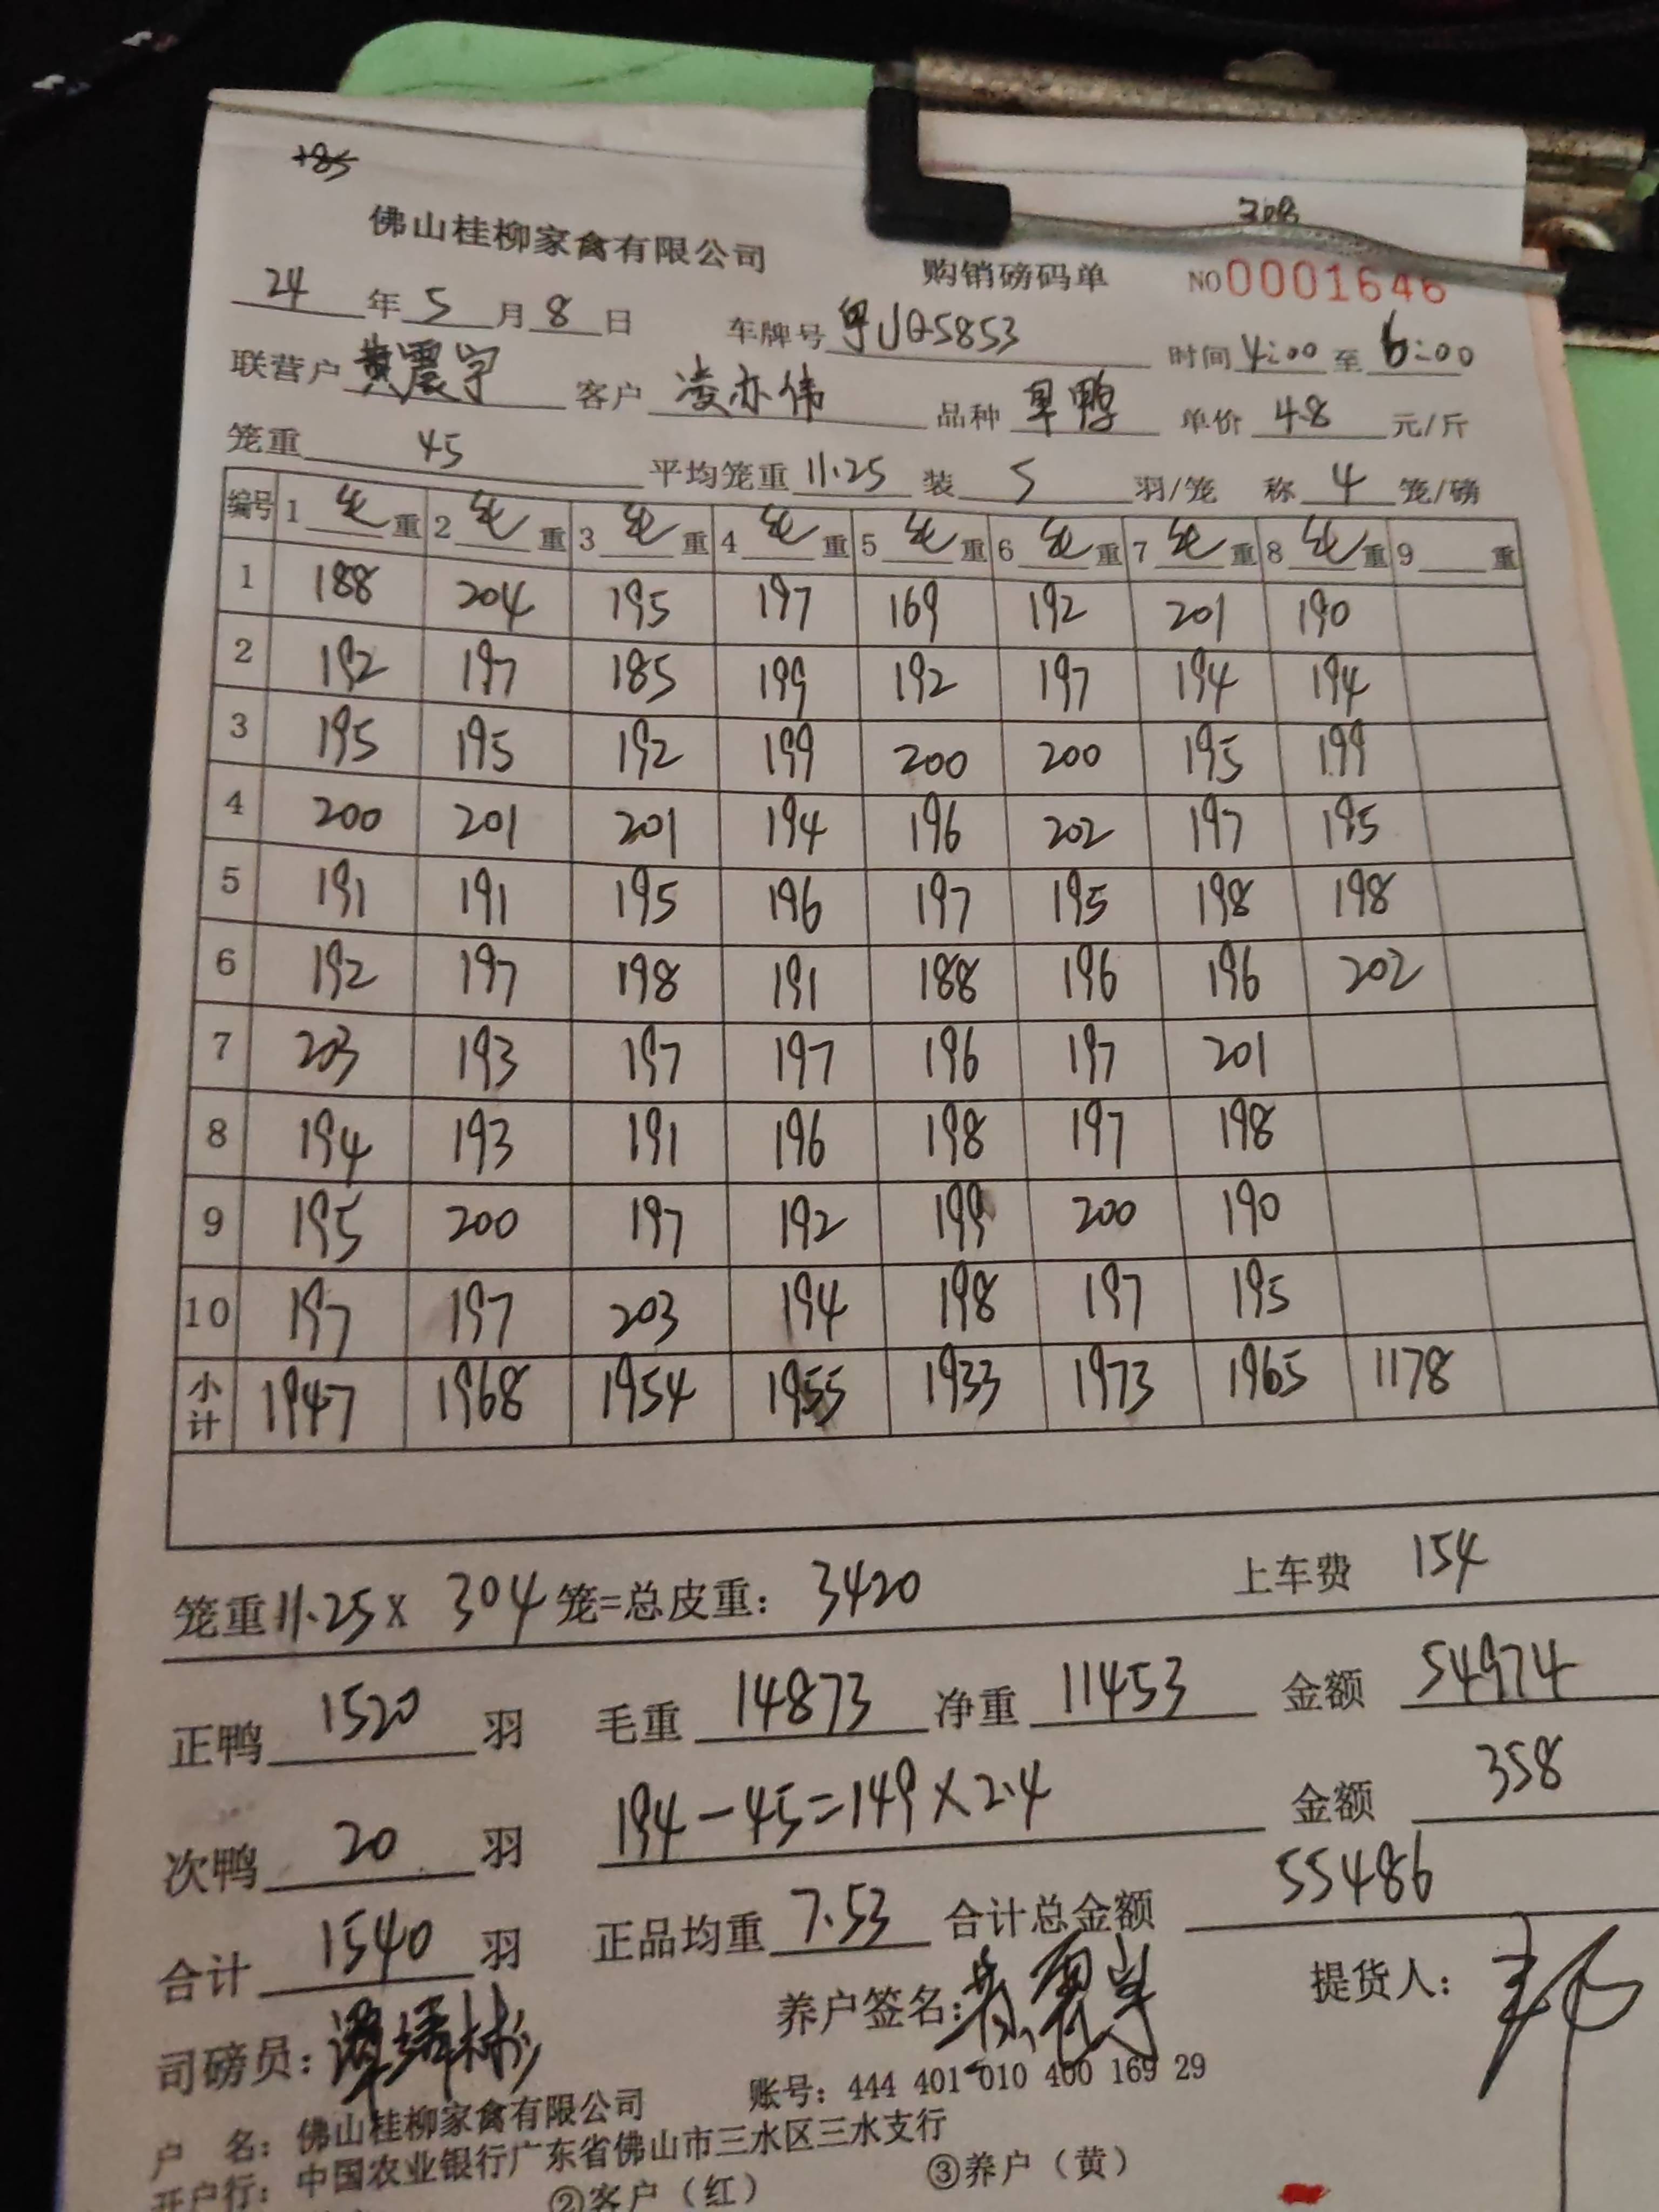 +85
308
佛山桂柳家禽有限公司 购销磅码单 NO 0001646
24年5月8日 车牌号 粤JQ5853 时间 4:00 至 6:00
联营户 黄震宇 客户 凌亦伟 品种 旱鸭 单价 4.8 元/斤
笼重 45 平均笼重 11.25 装 5 羽/笼 称 4 笼/磅
编号 1 毛重 2 毛重 3 毛重 4 毛重 5 毛重 6 毛重 7 毛重 8 毛重 9 重
1 188 204 195 197 169 192 201 190
2 192 197 185 199 192 197 194 194
3 195 195 192 199 200 200 195 199
4 200 201 201 194 196 202 197 195
5 191 191 195 196 197 195 198 198
6 192 197 198 191 188 196 196 202
7 203 193 197 197 196 197 201
8 194 193 191 196 198 197 198
9 195 200 197 192 199 200 190
10 197 197 203 194 198 197 195
小计 1947 1968 1954 1955 1933 1973 1965 1178
笼重 11.25 x 304 笼=总皮重: 3420 上车费 154
正鸭 1520 羽 毛重 14873 净重 11453 金额 54974
次鸭 20 羽 194-45=149×2.4 金额 358
合计 1540 羽 正品均重 7.53 合计总金额 55486
司磅员: 养户签名: 黄震宇 提货人:
户 名: 佛山桂柳家禽有限公司 账号: 444 401 010 400 169 29
开户行: 中国农业银行广东省佛山市三水区三水支行
②客户（红） ③养户（黄）